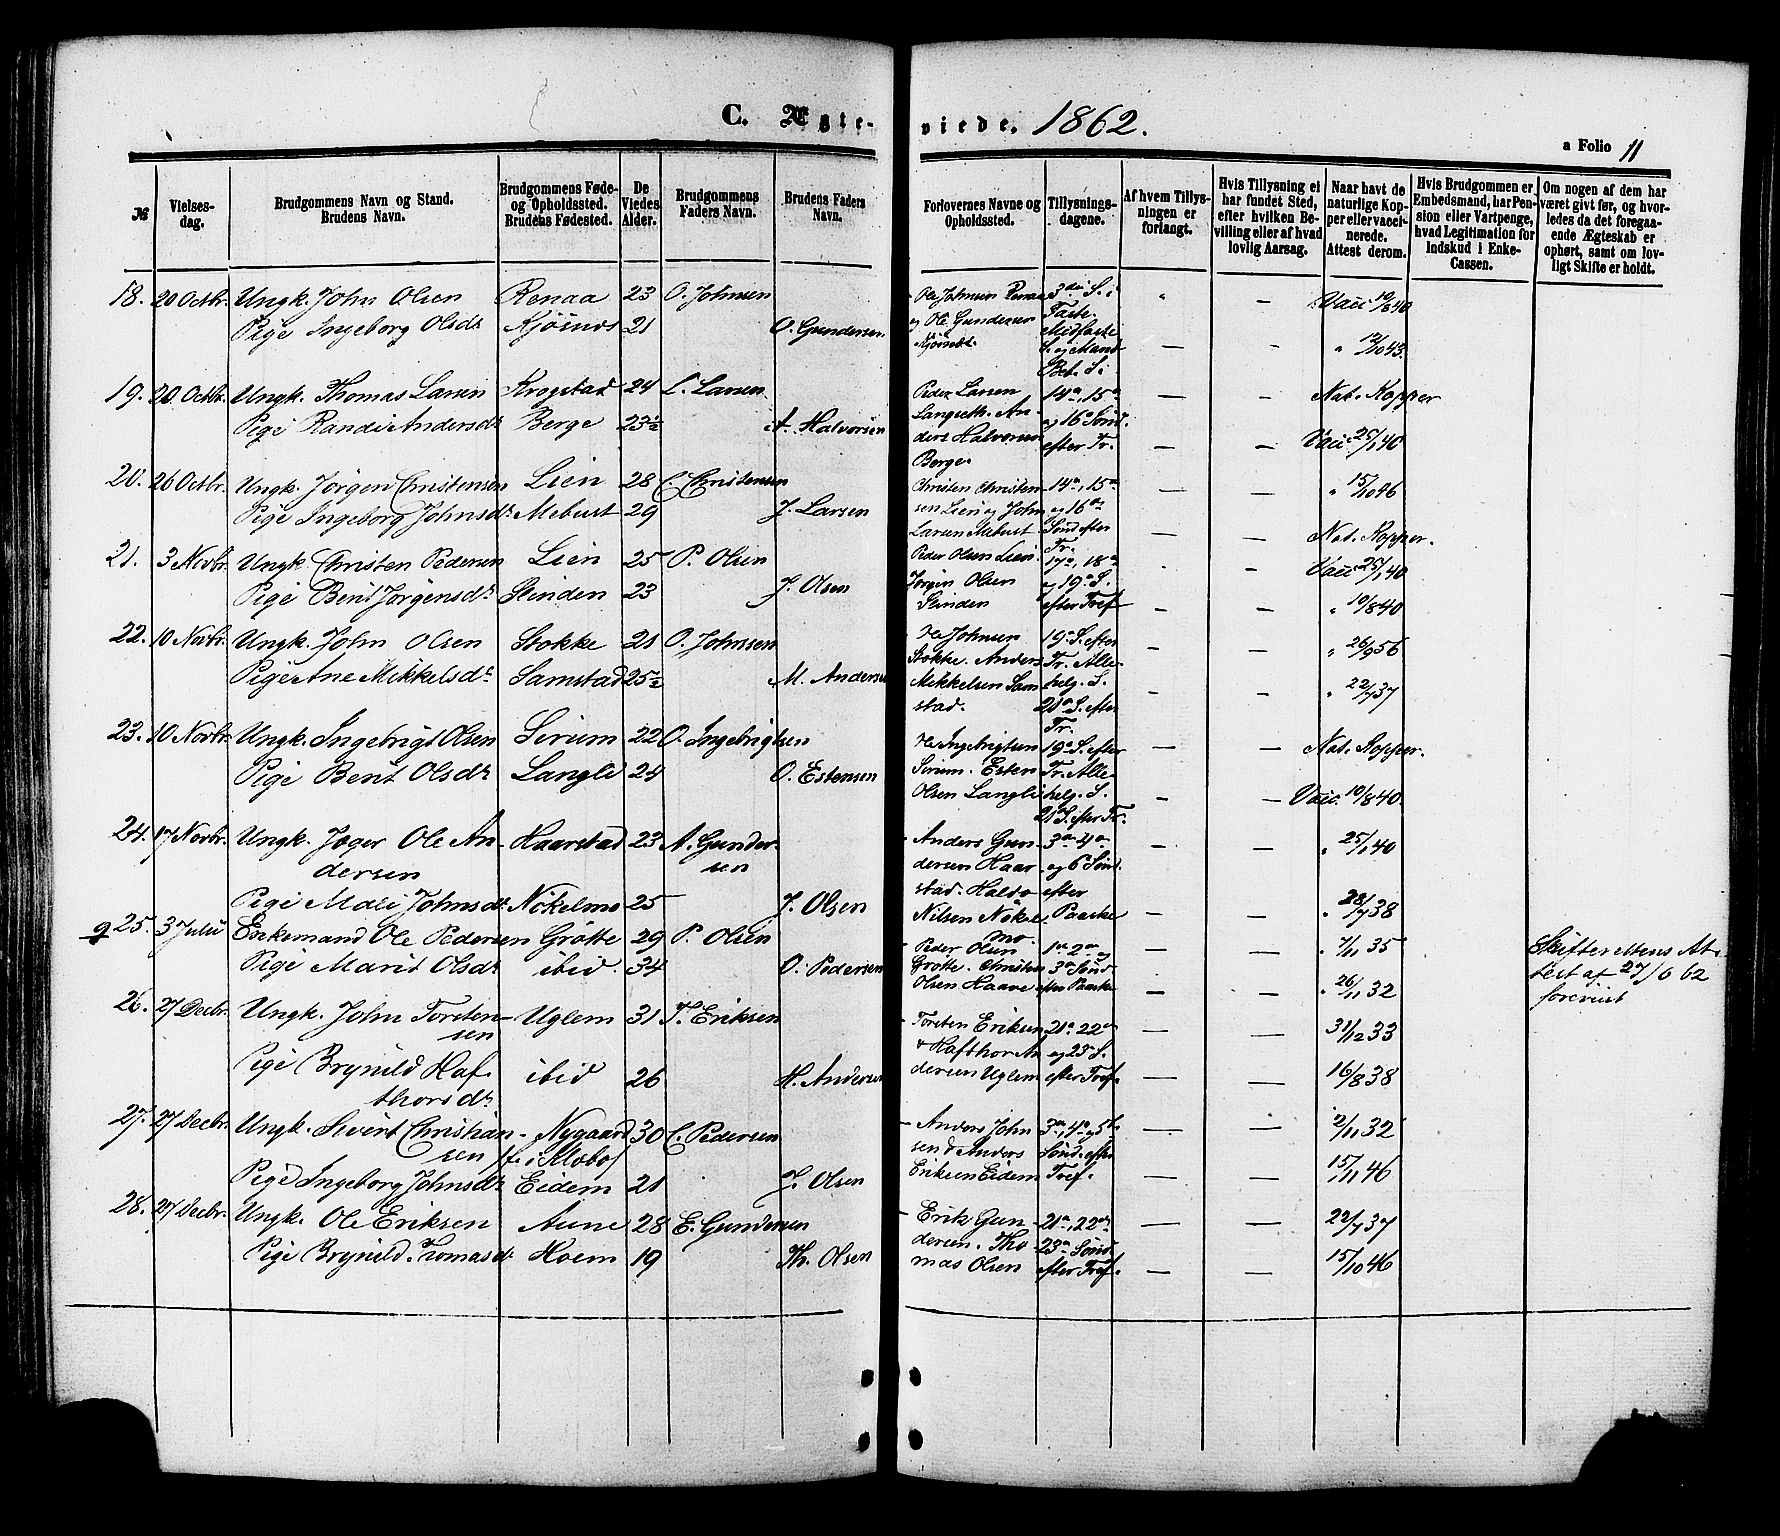 C. Ægteviede. 1862.
a Folio 11
№
Vielsesdag.
Brudgommens Navn og Stand.
Brudens Navn.
Brudgommens Føde-
og Opholdssted.
Brudens Fødested.
De
Viedes
Alder.
Brudgommens
Faders Navn.
Brudens Faders
Navn.
Forlovernes Navne og
Opholdssted.
Tillysnings-
dagene.
Af hvem Tillys-
ningen er
forlangt.
Hvis Tillysning ei
har fundet Sted,
efter hvilken Be-
villing eller af hvad
lovlig Aarsag.
Naar havt de
naturlige Kop-
per eller vacci-
nerede.
Attest derom.
Hvis Brudgommen er
Embedsmand, har Pen-
sion eller Vartpenge,
hvad Legitimation for
Indskud i Enke-
Cassen.
Om nogen af dem har
været givt før, og hvor-
ledes da det foregaa-
ende Ægteskab er
ophørt, samt om lov-
ligt Skifte er holdt.
18. 20 Octbr. Ungk. John Olsen Renaa 23 O. Johnsen Ole Johnsen Renaa 3die S. i " — Vacc 19/8 40
Pige Ingeborg Olsdr Kjøsnes 21 O. Gundersen og Ole Gundersen Faste, Midfaste — - " 12/10 43.
Kjøsnes S. og Mariæ
Beb. S.
19. 20 Octbr. Ungk. Thomas Larsen Krogstad 24 L. Larsen Peder Larsen 14de, 15de — — Nat. Kopper
Pige Randi Andersdr Berge 23½ A. Halvorsen Langseth. An- og 16de Sønd. — — Vacc 25/1 40
ders Halvorsen efter Tr.
Berge.
20. 26 Octbr. Ungk. Jørgen Christensen Lien 28 C. Christensen Christen Christen- 14de, 15de — — " 15/10 46
Pige Ingeborg Johnsdr Mebust 29 J. Larsen sen Lien og John og 16de — — Nat. Kopper.
Larsen Mebust Sønd efter
Tr.
21. 3 Novbr. Ungk. Christen Pedersen Lien 25 P. Olsen Peder Olsen Lien. 17de, 18de - — Vacc 25/1 40
Pige Berit Jørgensdr Slinden 23 J. Olsen Jørgen Olsen og 19de S. — — " 10/8 40
Slinden efter Tref
22. 10 Novbr. Ungk. John Olsen Stokke 21 O. Johnsen Ole Johnsen 19de S. efter — — " 26/9 56
Pige Ane Mikkelsdr Samstad 25½ M. Andersen Stokke. Anders Tr. Alle- - — " 22/7 37
Mikkelsen Sam helg. S.
stad. 21de S. efter
Tr.
23. 10 Novbr. Ungk. Ingebrigt Olsen Sirum 22 O. Ingebrigtsen Ole Ingebrigtsen 19de S. efter — — Nat. Kopper.
Pige Berit Olsdr Langli 24 O. Estensen Sirum. Esten Tr. Alle- - — Vacc. 10/8 40.
Olsen Langli helg. S.
21 S. efter Tr.
24. 17 Novbr. Ungk. Jæger Ole An- Haarstad 23 A. Gunder- Anders Gun- 3die 4de " 25/1 40
dersen sen dersen Haar og 6 Sønd
Pige Mali Johnsdr Nökelmo 25 J. Olsen stad. Haldo efter " 28/7 38
Nilsen Nökel Paaske — —
mo.
g 25. 3 Juli Enkemand Ole Pedersen Grötte 29 P. Olsen Peder Olsen 1ste 2den og — — " 7/11 35 Skifterettens At-
Pige Marit Olsdr ibid. 34 O. Pedersen Grötte. Christen 3die Sønd . — " 26/11 32 test af 27/6 62
Olsen Haave efter Paaske forevist
26. 27 Decbr. Ungk. John Torsten- Uglem 31 T. Eriksen Torsten Eriksen 21de 22de — — 31/12 33
sen & Hafthor An og 23de S.
Pige Brynild Haf- ibid 26 H. Andersen dersen Uglem efter Tref. — — 16/8 38
thorsdr
27. 27 Decbr. Ungk. Sivert Christian- Nygaard 30 C. Pedersen Anders John 3die, 4de og 5te — — 2/11 32
sen f. i Moebo sen & Anders Sønd. efter
Pige Ingeborg Johnsdr Eidem 21 J. Olsen Eriksen Eidem Tref. — — 15/11 46
28. 27 Decbr. Ungk. Ole Eriksen Aune 28 E. Gundersen Erik Gun 21de, 22de — — 22/7 37
Pige Brynild Thomasdr Hoem 19 Th. Olsen dersen. Tho 23de Sønd — — 15/10 46
mas Olsen efter Tref.